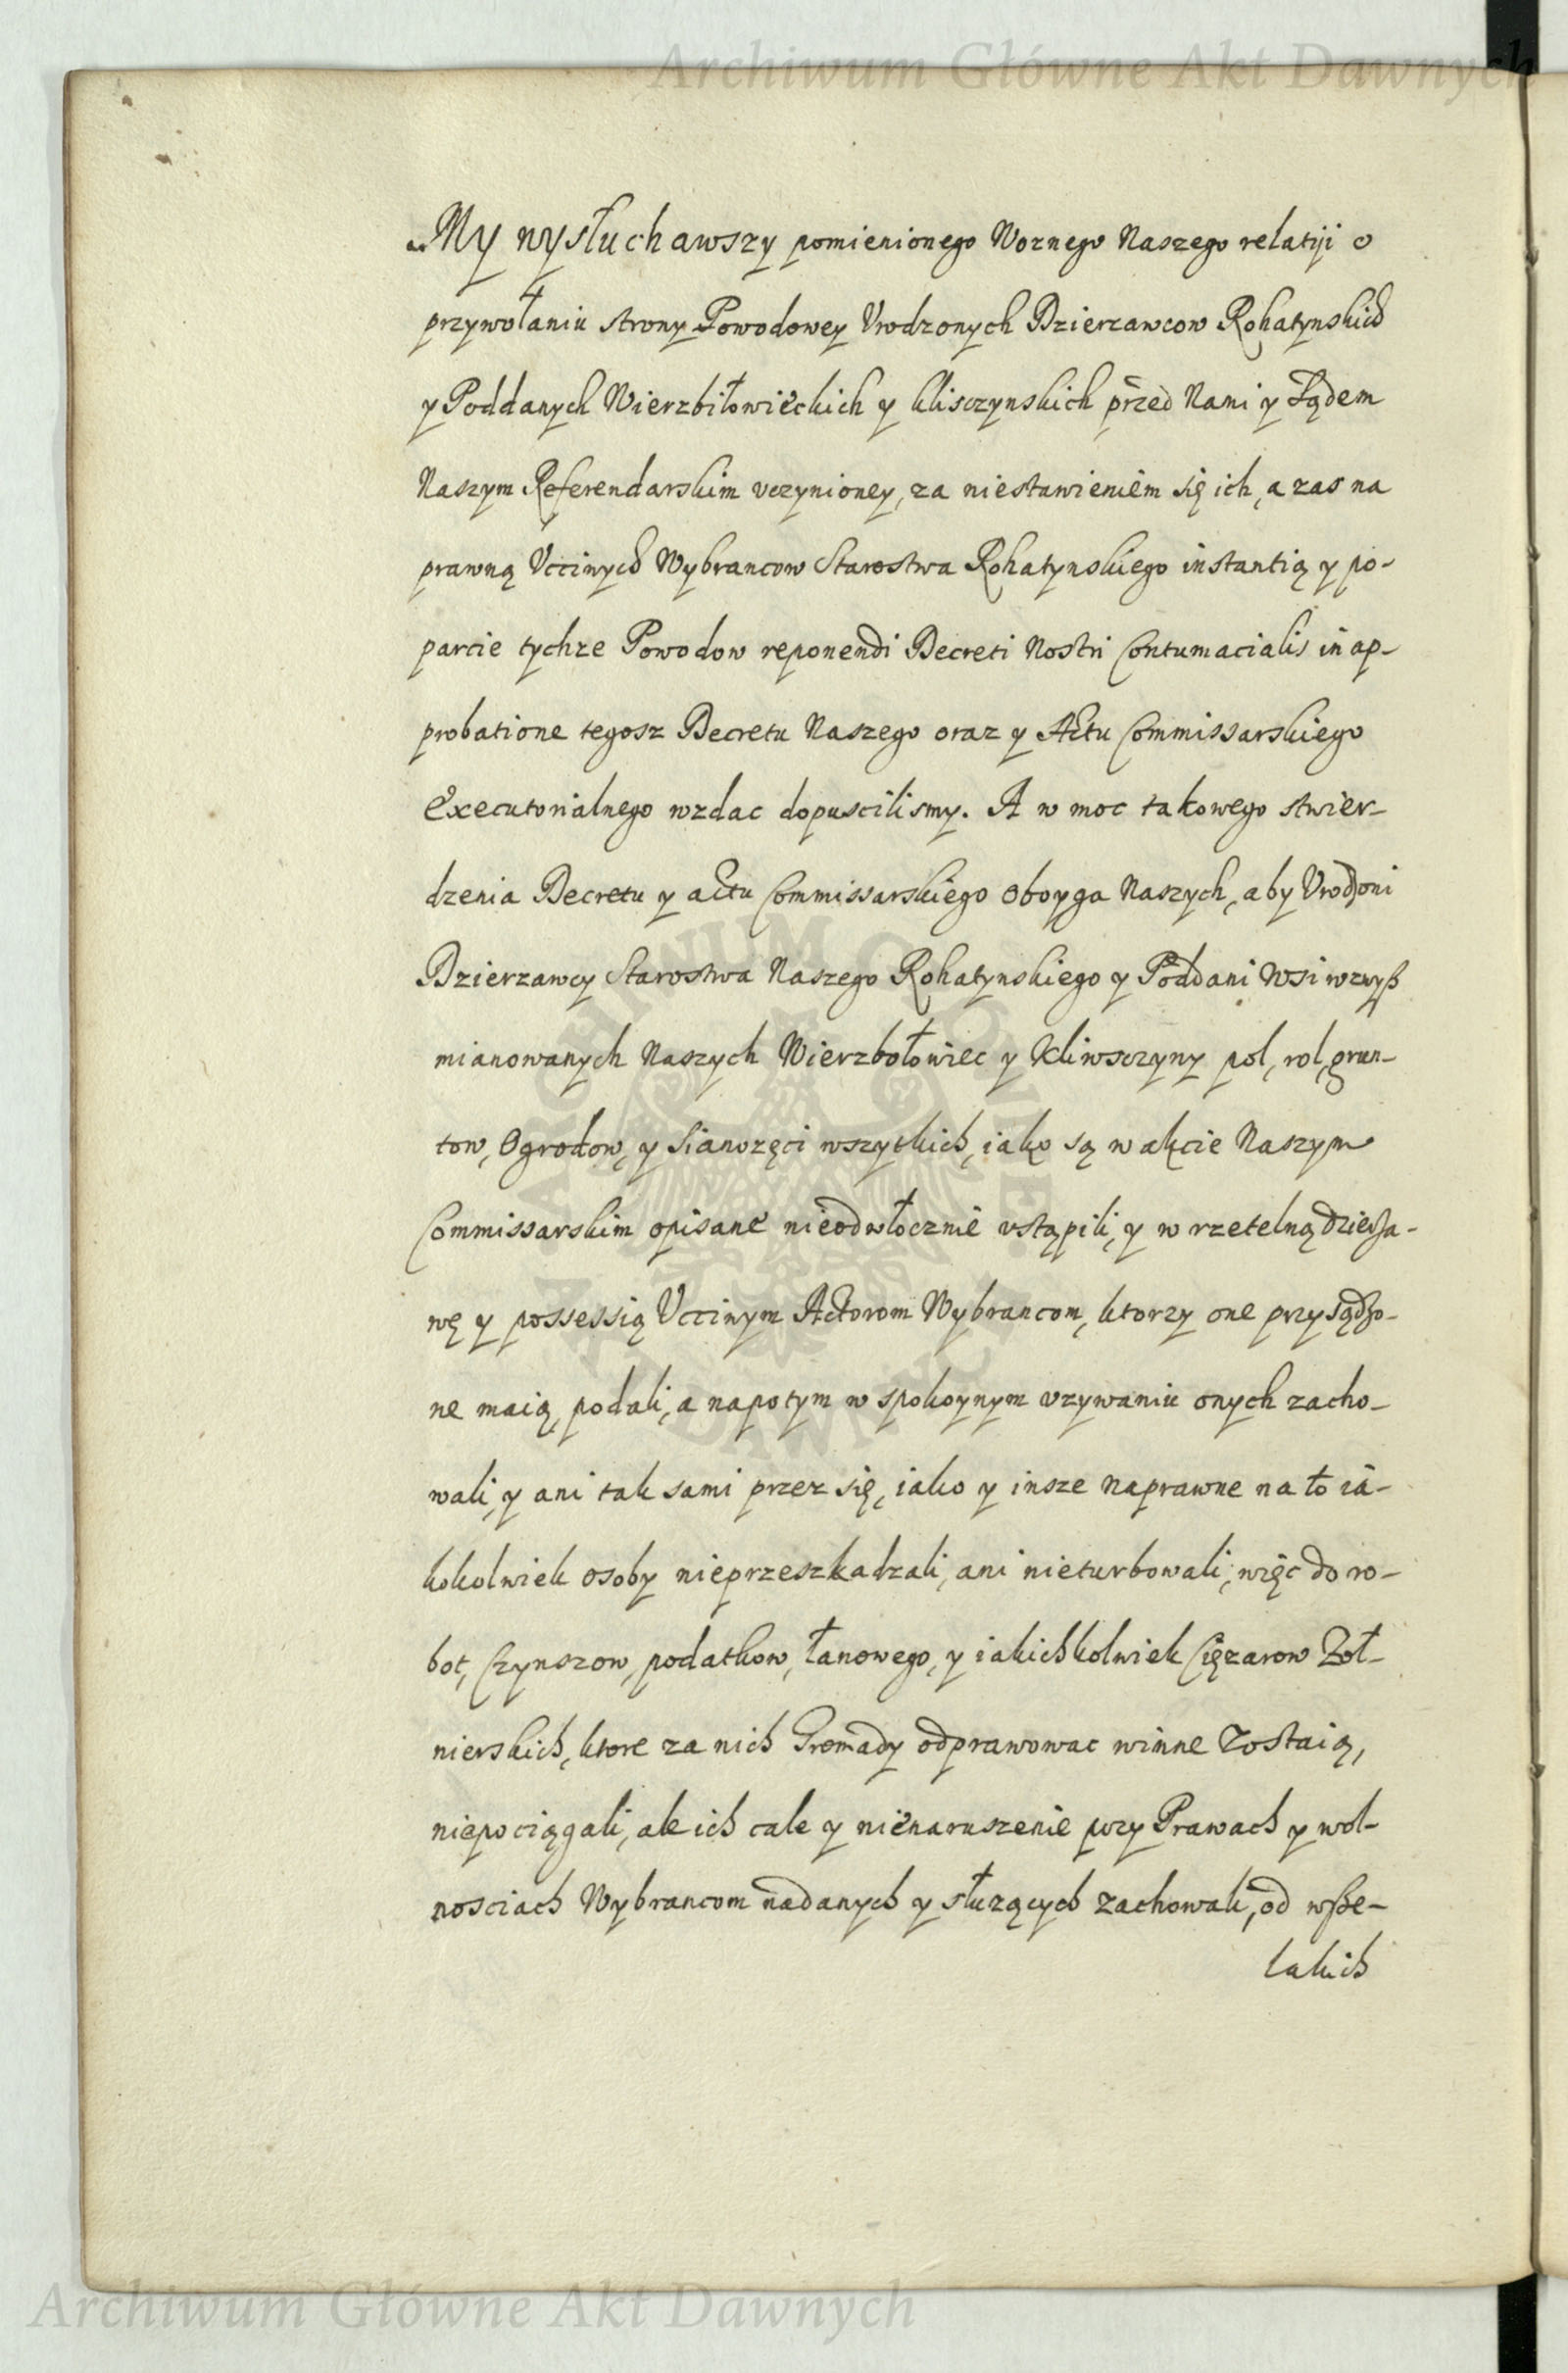 Archiwum Główne Akt Dawnych
My wysłuchawszy pomienionego Woznego Naszego relatiji o
przywołaniu strony Powodowey Vrodzonych Dzierzawcow Rohatynskich
y Poddanych Wierzbiłowieckich y Klisczynskich przed Nami y Sądem
Naszym Referendarskim vczynioney, za niestawieniem się ich, a zas na
prawną Vccinych Wybrancow Starostwa Rohatynskiego instantią y po-
parcie tychze Powodow reponendi Decreti Nostri Contumacialis in ap-
probatione tegosz Decretu Naszego oraz y Actu Commissarskiego
Executorialnego wzdac dopuscilismy. A w moc takowego stwier-
dzenia Decretu y actu Commissarskiego oboyga Naszych, aby Vrodzoni
Dzierzawcy Starostwa Naszego Rohatynskiego y Poddani Wsi wzwyß
mianowanych Naszych Wierzbołowiec y Kliwsczyny pol, rol, grun-
tow, Ogrodow, y Sianozęci wszytkich, iako są w akcie Naszym
Commissarskim opisane nieodwłocznie vstąpili, y w rzetelną dzierza-
wę y possessią Vccinym Actorom Wybrancom, ktorzy one przysądzo-
ne maią, podali, a napotym w spokoynym vzywaniu onych zacho-
wali, y ani tak sami przez się, iako y insze naprawne na to ia-
kokolwiek osoby nieprzeszkadzali, ani nieturbowali, więc do ro-
bot, Czynszow, podatkow, łanowego, y iakichkolwiek Cięzarow Zoł-
nierskich, ktore za nich Gromady odprawowac winne zostaią,
niepociągali, ale ich cale y nienaruszenie przy Prawach y wol-
nosciach Wybrancom nadanych y słuzących zachowali, od wße-
lakich
Archiwum Główne Akt Dawnych